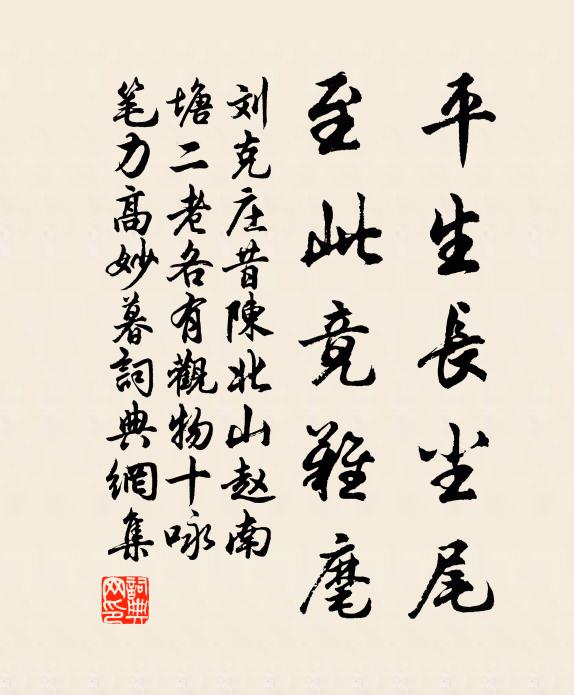 平生長尘尾
至此竟難麾
刘克庄昔陳北山赵南
塘二老各有觀物十咏
笔力高妙暮詞典網集
詞典
网印